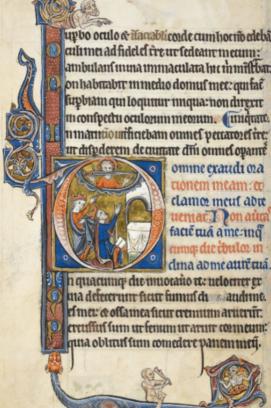 oculo et corde cum hoc no edebā
culi mei ad fideles tre ut sedeant mecum:
ambulans in via immaculata hic m mistbat
on habitabit in medio domus mee: qui facit
supbiam qui loquitur iniqua: non direxit
in conspectu oculorum meorum
in matutino intficiebam omnes peccatores tre:
ut disperderem de civitate dni omnes opantes
Domine exaudi ora
tionem meam: et
clamor meus ad te
veniat Non avtas
faciē tuā a me: in q
cumque die tribulor in
clina ad me aurē tuā
n quacumque die invocavo te: velocit
ia defecerunt sicut fumus dies
mei: et ossa mea sicut cremium aruerūt
ercussus sum ut fenum et aruit cor meum:
quia oblitus sum comedere panem meū